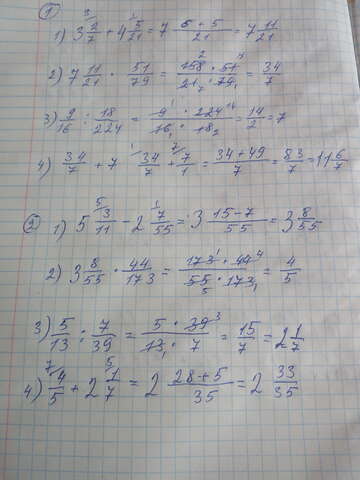 ①
1) 3 2/7 + 4 5/21 = 7 6+5/21 = 7 11/21
2) 7 11/21 · 51/79 = 158 · 51/21 · 79 = 34/7
3) 9/16 : 18/224 = 9 · 224/16 · 18 = 14/2 = 7
4) 34/7 + 7 34/7 + 7/1 = 34+49/7 = 83/7 = 11 6/7
②
1) 5 3/11 - 2 7/55 = 3 15-7/55 = 3 8/55
2) 3 8/55 · 44/173 = 173 · 44/55 · 173 = 4/5
3) 5/13 : 7/39 = 5 · 39/13 · 7 = 15/7 = 2 1/7
4) 4/5 + 2 1/7 = 2 28+5/35 = 2 33/35